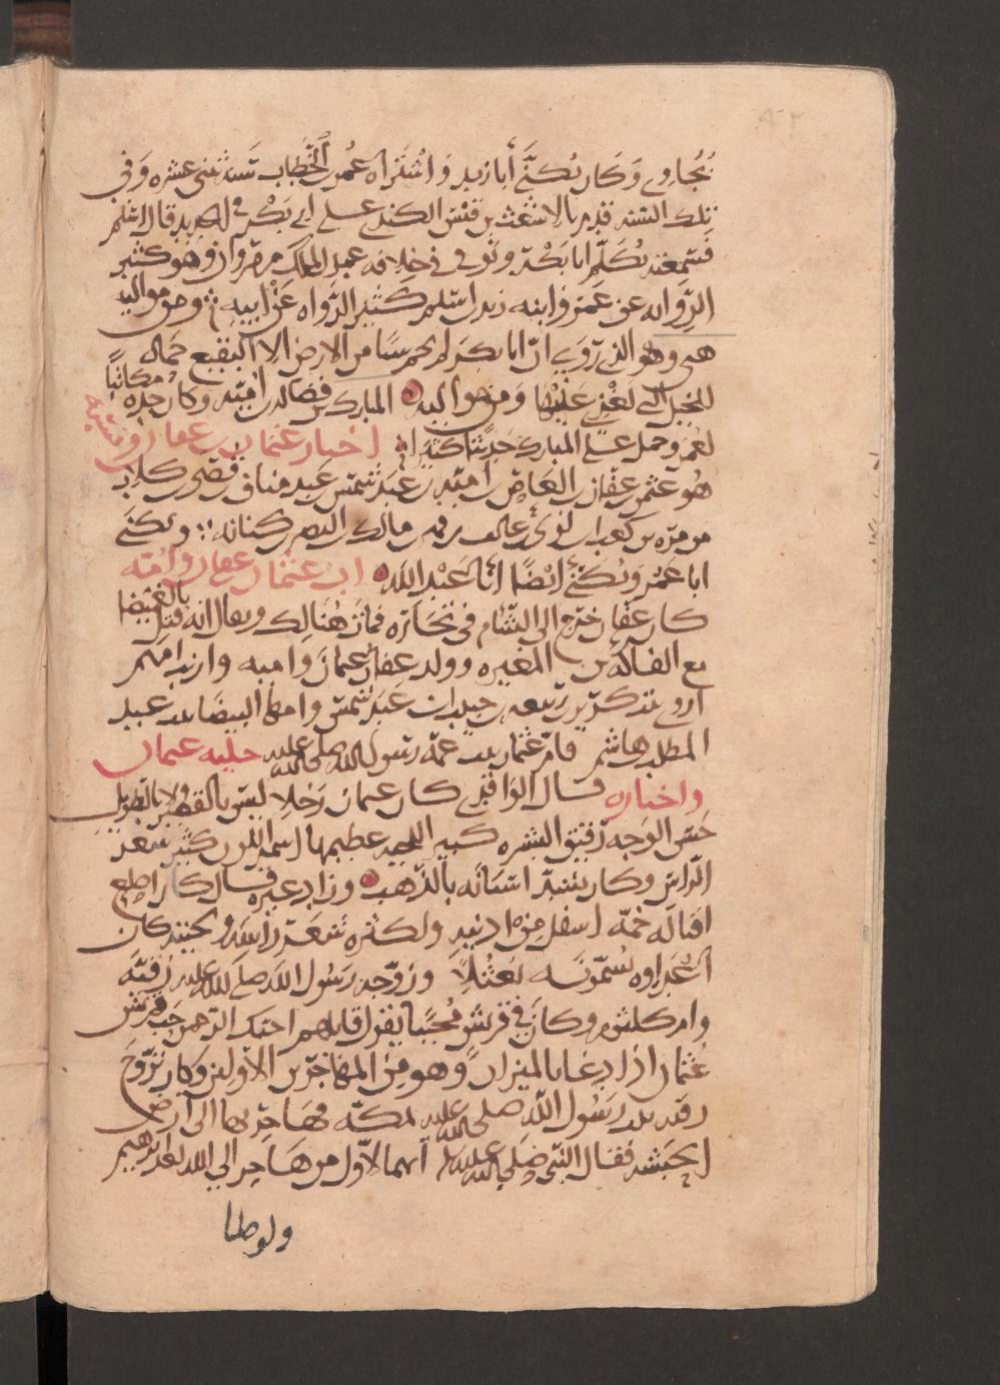 بُجَاوِي وَكَان يُكنَّى أبا زيد وَاشْتَراه عُمر بن الخَطاب سَنة ثنتي عشره وَفي
تلك السَنه قدِم بالاشعَث بن قيس الكندي على ابي بَكْر في الحديد قال اسْلم
فسَمعته يُكلّم ابا بَكْر وتوفي في خلافه عبد الملك بن مروان وهو كثير
الرّوَايه عن عُمَر وابنه زيد بن اسْلم كثير الرّواه عَنْ ابيه ومن مواليه
هني وهو الذي رَوَى انّ ابا بكر لم يحم شيا من الارض الا البَقيع حَماه
للخيل التي يَغزي عليها وَمن مواليه المبارك بن فضاله بن اميّه وكان جده مكاتبًا
لعُمر وحمل علي المبارك حَديثا كثيرا اخبار عثمان بن عفان ونسَبه
هُو عثمن بن عفان بن ابي العَاص بن اميّه بن عَبد شمس بن عَبد مناف بن قصَي بن كلاب
بن مرّه بن كعب بن لؤي بن غالب بن فهر بن مالك بن النضر بن كنانه ويكنَى
ابا عمْرو يُكنَى ايْضًا ابَا عَبْد الله ابو عثمان عفان وامّه
كان عفان خرَج الى الشَام في تجارَة فماتَ هُنَالِك ويقال انه قتِل بالغميصَا
مع الفاكه بن المغيره وولد عفان عثمانَ وامنه وارنب امهم
اروى بنت كرَيز بن ربيعه بن حبيب بن عَبد شمس وامها البيضَا بنت عبد
المطلب بن هاشم فام عثمان بنت عمّة رَسول الله صلى الله عليه حليه عثمان
واخباره قال الوَاقدي كان عثمان رَجُلا ليسَ بالقصير ولا بالطويل
حَسَن الوَجه رقيق البشَره كبير اللحيه عظيمها اسمر اللون كثير شعر
الرّاس وكان يَشد اسْنَانه بالذهب وزاد غيره فقال كان اصلع
اقنا له جمّه اسفل من اذنيه ولكثره شعَر رَاسه ولحيته كان
اعْدَاوه يُسمّونه نَعْثَلاً وزوّجه رَسُول الله صلى الله عليه رُقيّة
وام كلثوم وكانَ في قريش مُحَببًا يقول قايلهم احبّك الرّحمن حب قريش
عُثمان اذا دعا بالميزان وهو مِن المهَاجرين الاوّلين وَكان تزوّج
رقيه بنت رَسُول اللّه صلى الله عليه بمكّه فهَاجر بها الى ارض
الحَبَشه فقال النبي صَلى الله عليه انهما لاوّل من هَاجر الى الله بعد ابرهيم
ولوطا